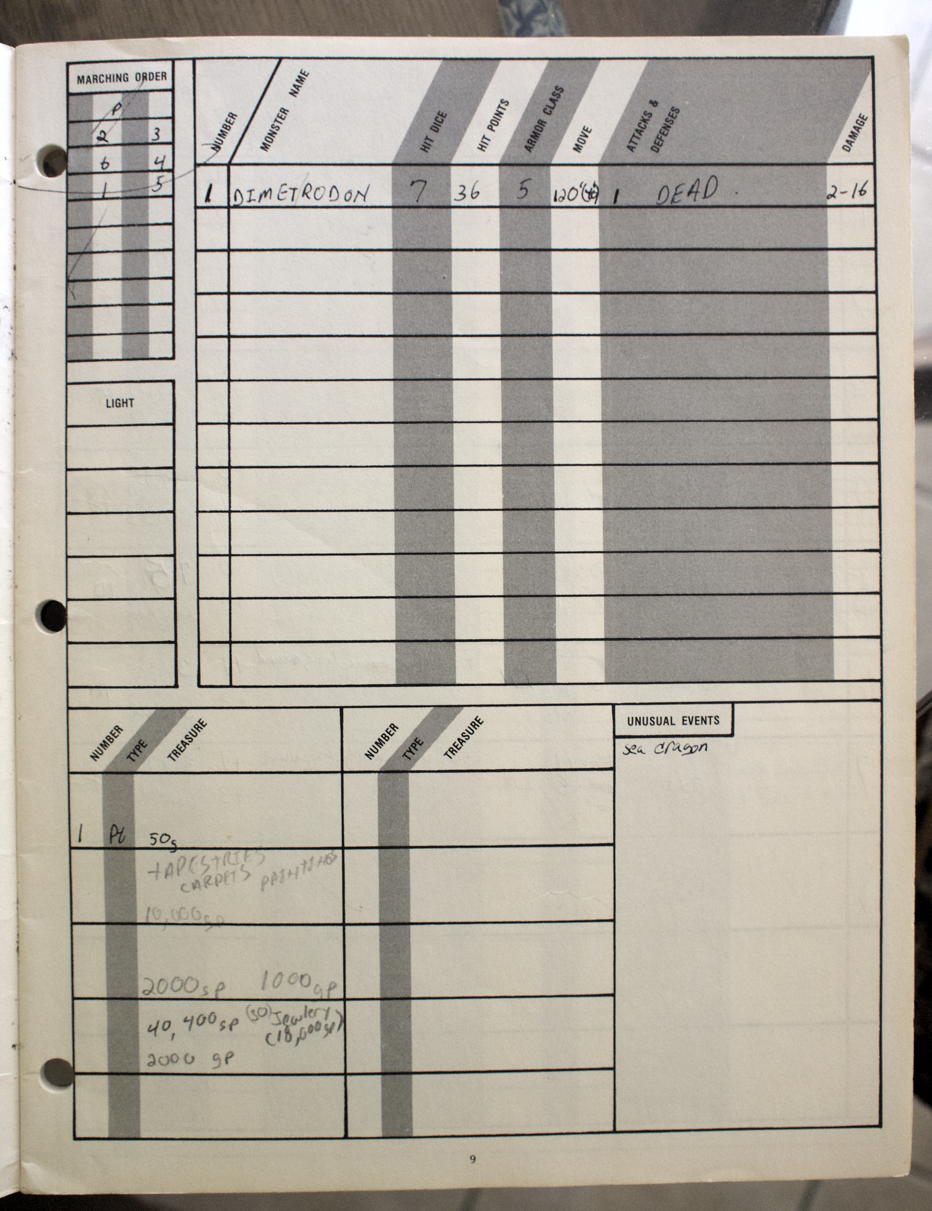 MARCHING ORDER
2 3
6 4
1 5
NUMBER MONSTER NAME HIT DICE HIT POINTS ARMOR CLASS MOVE ATTACKS & DEFENSES DAMAGE
1 DIMETRODON 7 36 5 120' 1 DEAD 2-16
LIGHT
NUMBER TYPE TREASURE
1 50
TAPESTRIES
CARPETS PAINTINGS
10,000
2000 sp 1000 gp
40,400 sp (50) Jewlery
(18,000
2000 gp
NUMBER TYPE TREASURE
UNUSUAL EVENTS
sea dragon
9